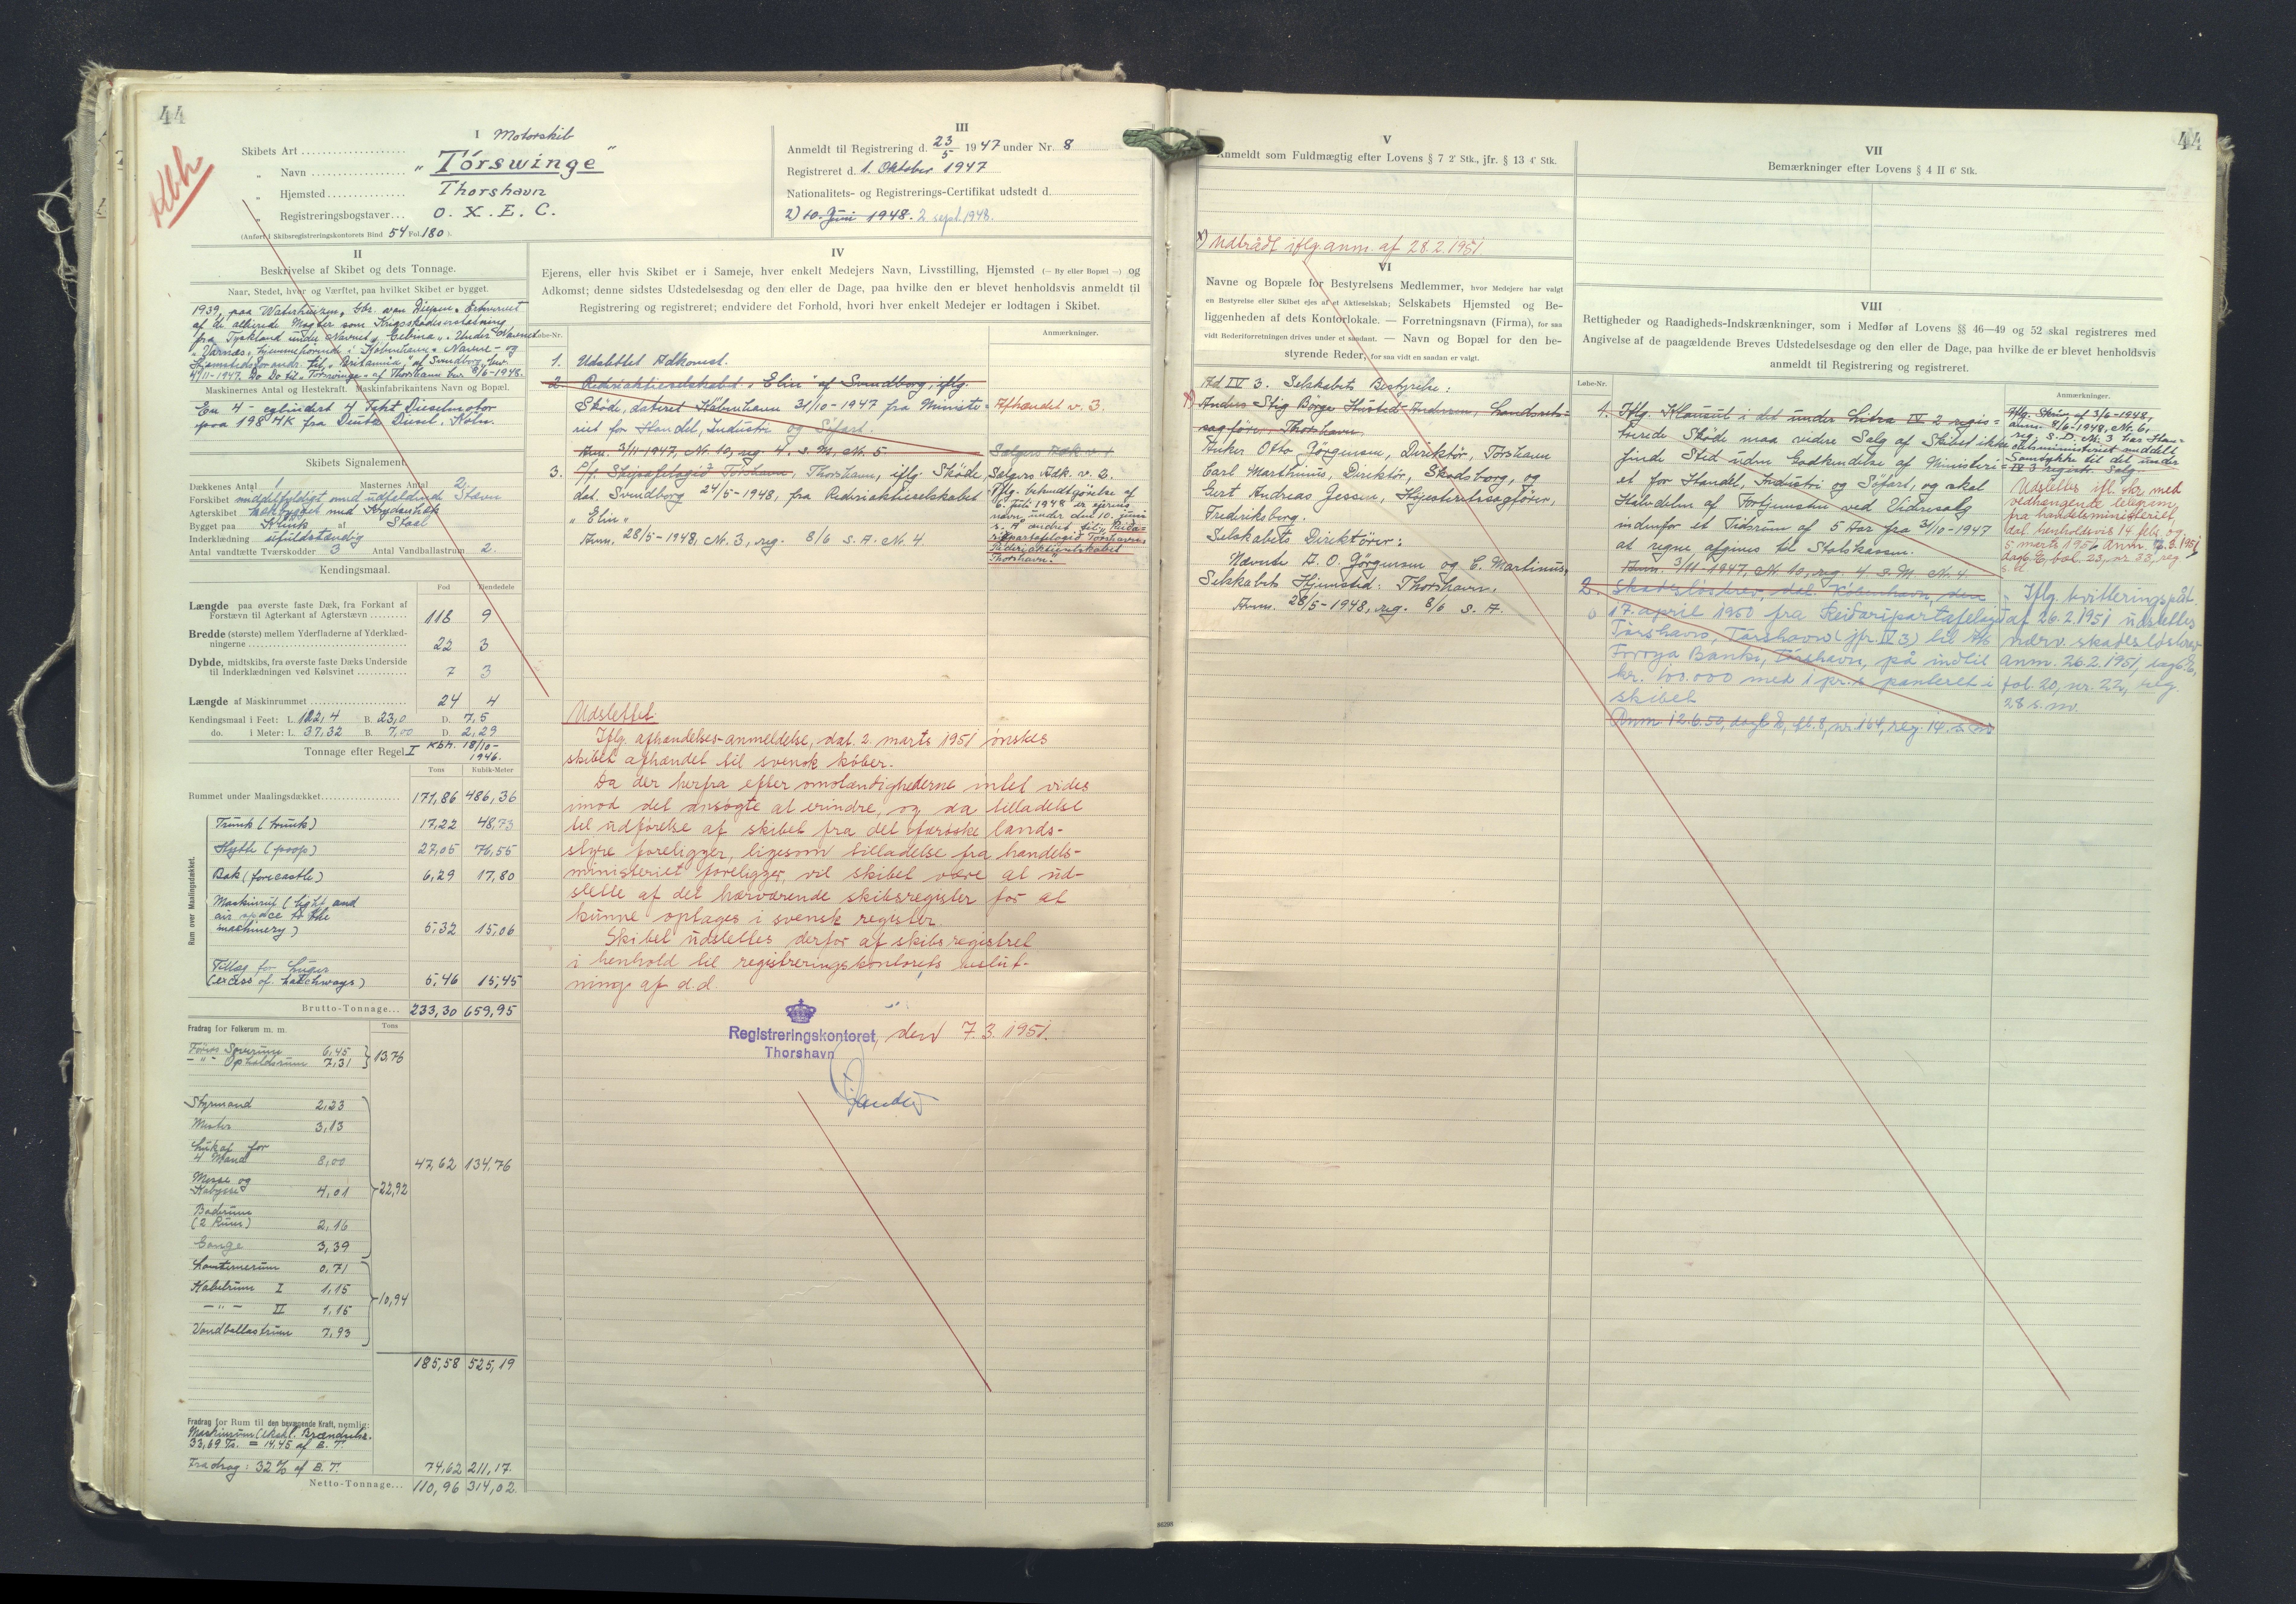 44
44
Kbh
I
Skibets Art Motorskib
„ Navn „Tórswinge"
„ Hjemsted Thorshavn
„ Registreringsbogstaver O. X. E. C.
(Anført i Skibsregistreringskontorets Bind 54 Fol. 180).
III
Anmeldt til Registrering d. 23/5 1947 under Nr. 8
Registreret d. 1. Oktober 1947
Nationalitets- og Registrerings-Certifikat udstedt d.
2) 10. Juni 1948. 2. sept. 1948.
II
Beskrivelse af Skibet og dets Tonnage.
Naar, Stedet, hvor og Værftet, paa hvilket Skibet er bygget.
1939, paa Waterhuizen, Gbr. van Diepen. Erhvervet
af de allierede Magter som Krigsskadeserstatning
fra Tyskland under Navnet „Gebina". Under Navnet
„Varnæs", hjemmehørende i København. Navne- og
Hjemstedsforandr. til „Britannia" af Svendborg
4/11-1947. Do Do til „Tórswinge" af Thorshavn 8/6-1948.
Maskinernes Antal og Hestekraft. Maskinfabrikantens Navn og Bopæl.
En 4-cylindert 4 Takt Dieselmotor
paa 198 HK fra Deutz Diesel, Köln.
Skibets Signalement.
Dækkenes Antal 1 Masternes Antal 2
Forskibet middelfyldigt med udfaldende Stævn
Agterskibet med Krydserhæk
Bygget paa Klink af Staal
Inderklædning ufuldstændig
Antal vandtætte Tværskodder 3 Antal Vandballastrum 2.
Kendingsmaal.
Fod Tiendedele
Længde paa øverste faste Dæk, fra Forkant af
Forstævn til Agterkant af Agterstævn 118 9
Bredde (største) mellem Yderfladerne af Yderklæd-
ningerne 22 3
Dybde, midtskibs, fra øverste faste Dæks Underside
til Inderklædningen ved Kølsvinet 7 3
Længde af Maskinrummet 24 4
Kendingsmaal i Feet: L. 122,4 B. 23,0 D. 7,5
do. i Meter: L. 37,32 B. 7,00 D. 2,29
Tonnage efter Regel I Kbh. 18/10-1946.
Tons Kubik-Meter
Rummet under Maalingsdækket 171,86 486,36
Rum over Maalingsdækket.
Trunk (trunk) 17,22 48,73
Hytte (poop) 27,05 76,55
Bak (forecastle) 6,29 17,80
Maskinrum (light and
air space to the
machinery) 5,32 15,06
Tillæg for Luger
(excess of hatchways) 5,46 15,45
Brutto-Tonnage 233,30 659,95
Fradrag for Folkerum m. m. Tons
Førers Soverum 6,45
-"- Opholdsrum 7,31 } 13,76
Styrmand 2,23
Mester 3,13
Lukaf for
4 Mand 8,00
47,62 134,76
Messe og
Kabysse 4,01
22,92
Baderum
(2 Rum) 2,16
Gange 3,39
Lanternerum 0,71
Kabelrum I 1,15
-"- II 1,15
10,94
Vandballastrum 7,93
185,58 525,19
Fradrag for Rum til den bevægende Kraft, nemlig:
Maskinrum (ekskl. Brændselsr.
33,69 Ts. = 14,45 af B. T.
Fradrag: 32 % af B. T. 74,62 211,17
Netto-Tonnage 110,96 314,02
IV
Ejerens, eller hvis Skibet er i Sameje, hver enkelt Medejers Navn, Livsstilling, Hjemsted (— By eller Bopæl —) og
Adkomst; denne sidstes Udstedelsesdag og den eller de Dage, paa hvilke den er blevet henholdsvis anmeldt til
Registrering og registreret; endvidere det Forhold, hvori hver enkelt Medejer er lodtagen i Skibet.
Løbe-Nr. Anmærkninger.
1. Udslettet Adkomst.
2. Rederiaktieselskabet „Elin" af Svendborg, iflg.
Skøde, dateret København 31/10-1947 fra Ministe-
riet for Handel, Industri og Søfart.
Anm. 3/11-1947, Nr. 10, reg. 4. s. M. Nr. 5
Afhændet v. 3.
Sælgers Adk. v. 1.
3. P/f. Skipsafelagið Tórshavn, Thorshavn, iflg. Skøde,
dat. Svendborg 24/5-1948, fra Rederiaktieselskabet
„Elin"
Anm. 28/5-1948, Nr. 3, reg. 8/6 s. A. Nr. 4
Sælgers Adk. v. 2.
Iflg. bekendtgørelse af
6. Juli 1948 er ejerens
navn under den 10. juni
s. A. ændret til „Reiða-
ripartafelagið Tórshavn,
Rederiaktieselskabet
Thorshavn".
Udslettet
Iflg. afhændelses-anmeldelse, dat. 2. marts 1951 ønskes
skibet afhændet til svensk køber.
Da der herfra efter omstændighederne intet vides
imod det ansøgte at erindre, og da tilladelse
til udførelse af skibet fra det færøske lands-
styre foreligger, ligesom tilladelse fra handels-
ministeriet foreligger, vil skibet være at ud-
slette af det hærværende skibsregister for at
kunne optages i svensk register.
Skibet udslettes derfor af skibsregistret
i henhold til registreringskontorets beslut-
ning af d.d.
Registreringskontoret, den 7.3.1951.
Thorshavn
V
Anmeldt som Fuldmægtig efter Lovens § 7 2' Stk., jfr. § 13 4' Stk.
x) Udtrådt iflg. anm. af 28.2.1951.
VI
Navne og Bopæle for Bestyrelsens Medlemmer, hvor Medejere har valgt
en Bestyrelse eller Skibet ejes af et Aktieselskab; Selskabets Hjemsted og Be-
liggenheden af dets Kontorlokale. — Forretningsnavn (Firma), for saa
vidt Rederiforretningen drives under et saadant. — Navn og Bopæl for den be-
styrende Reder, for saa vidt en saadan er valgt.
Ad IV 3. Selskabets Bestyrelse:
x) Anders Stig Børge Husted-Andersen, Landsrets-
sagfører, Thorshavn,
Anker Otto Jörgensen, Direktör, Tórshavn
Carl Marthinus, Direktör, Skodsborg, og
Gert Andreas Jessen, Höjesteretssagförer,
Frederiksberg.
Selskabets Direktörer:
Nævnte A. O. Jörgensen og C. Martinus,
Selskabets Hjemsted: Thorshavn.
Anm. 28/5-1948, reg. 8/6 s. A.
VII
Bemærkninger efter Lovens § 4 II 6' Stk.
VIII
Rettigheder og Raadigheds-Indskrænkninger, som i Medfør af Lovens §§ 46—49 og 52 skal registreres med
Angivelse af de paagældende Breves Udstedelsesdag og den eller de Dage, paa hvilke de er blevet henholdsvis
anmeldt til Registrering og registreret.
Løbe-Nr. Anmærkninger.
1. Iflg. Klausul i det under Litra IV 2 regis-
trerede Skøde maa videre Salg af Skibet ikke
finde Sted uden Godkendelse af Ministeri-
et for Handel, Industri og Söfart, og skal
Halvdelen af Fortjenesten ved Videresalg
indenfor et Tidsrum af 5 Aar fra 31/10-1947
at regne afgives til Statskassen.
Anm. 3/11-1947, Nr. 10, reg. 4. s. M. Nr. 4.
Iflg. Skriv. af 3/6-1948,
anm. 8/6-1948, Nr. 6,
reg. s. D. Nr. 3 har Han-
delsministeriet meddelt
Samtykke til det under
IV 3 registr. Salg.
Udslettes ifl. skr. med
vedhængende telegram
fra handelsministeriet
dat. henholdsvis 14 febr. og
5 marts 1951, anm. 7.3.1951
dagb. E, fol. 23, nr. 33, reg.
s. d.
2. Skadesløsbrev, dat. København, den
17. april 1950 fra Reiðaripartafelagið
Tórshavn, Tórshavn (jfr. IV 3) til A/S
Føroya Banki, Tórshavn, på indtil
kr. 100.000 med 1 pr. s panteret i
skibet
Anm. 12.6.50, dagb. D, fl. 8, nr. 164, reg. 14. s. m
Iflg. kvitteringspåt.
af 26.2.1951 udslettes
nærv. skadesløsbrev
Anm. 26.2.1951, dagb. E,
fol. 20, nr. 22, reg.
28 s. m.